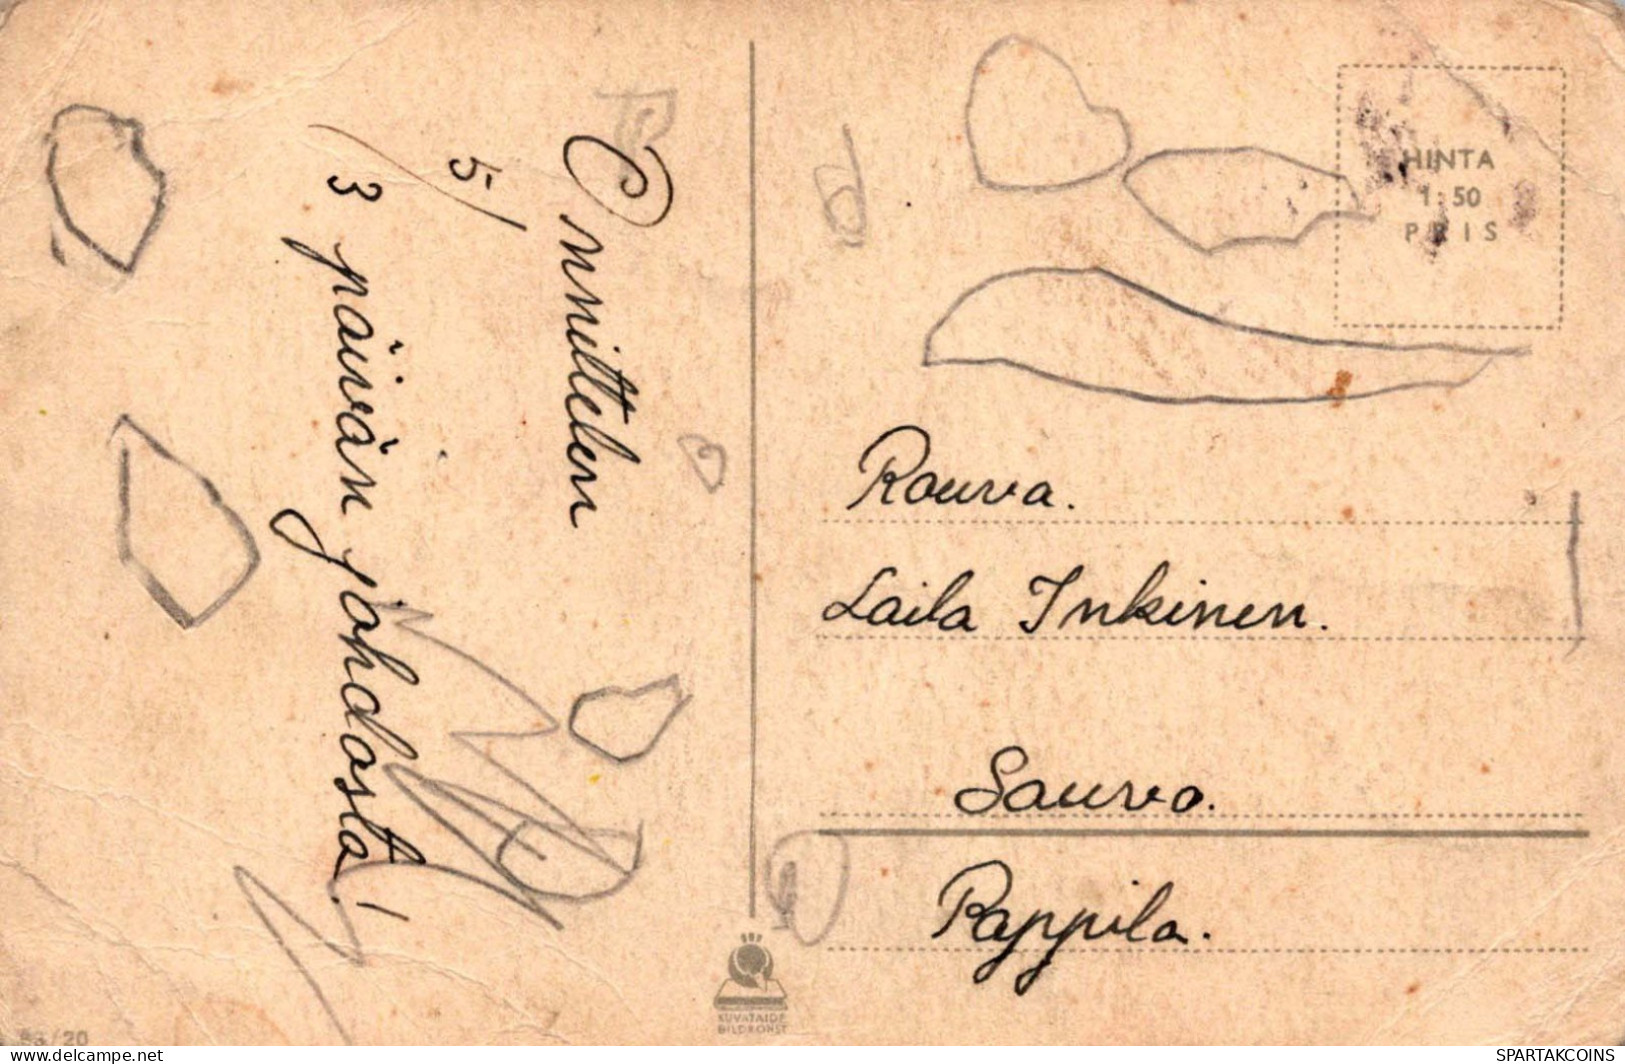 Onnittelen
5/
3 päivän johdosta!
HINTA
1:50
PRIS
Rouva.
Laila Inkinen.
Sauvo.
Pappila.
KUVATAIDE
BILDKONST
/20
SPARTAKCOINS
WWW.DELCAMPE.NET